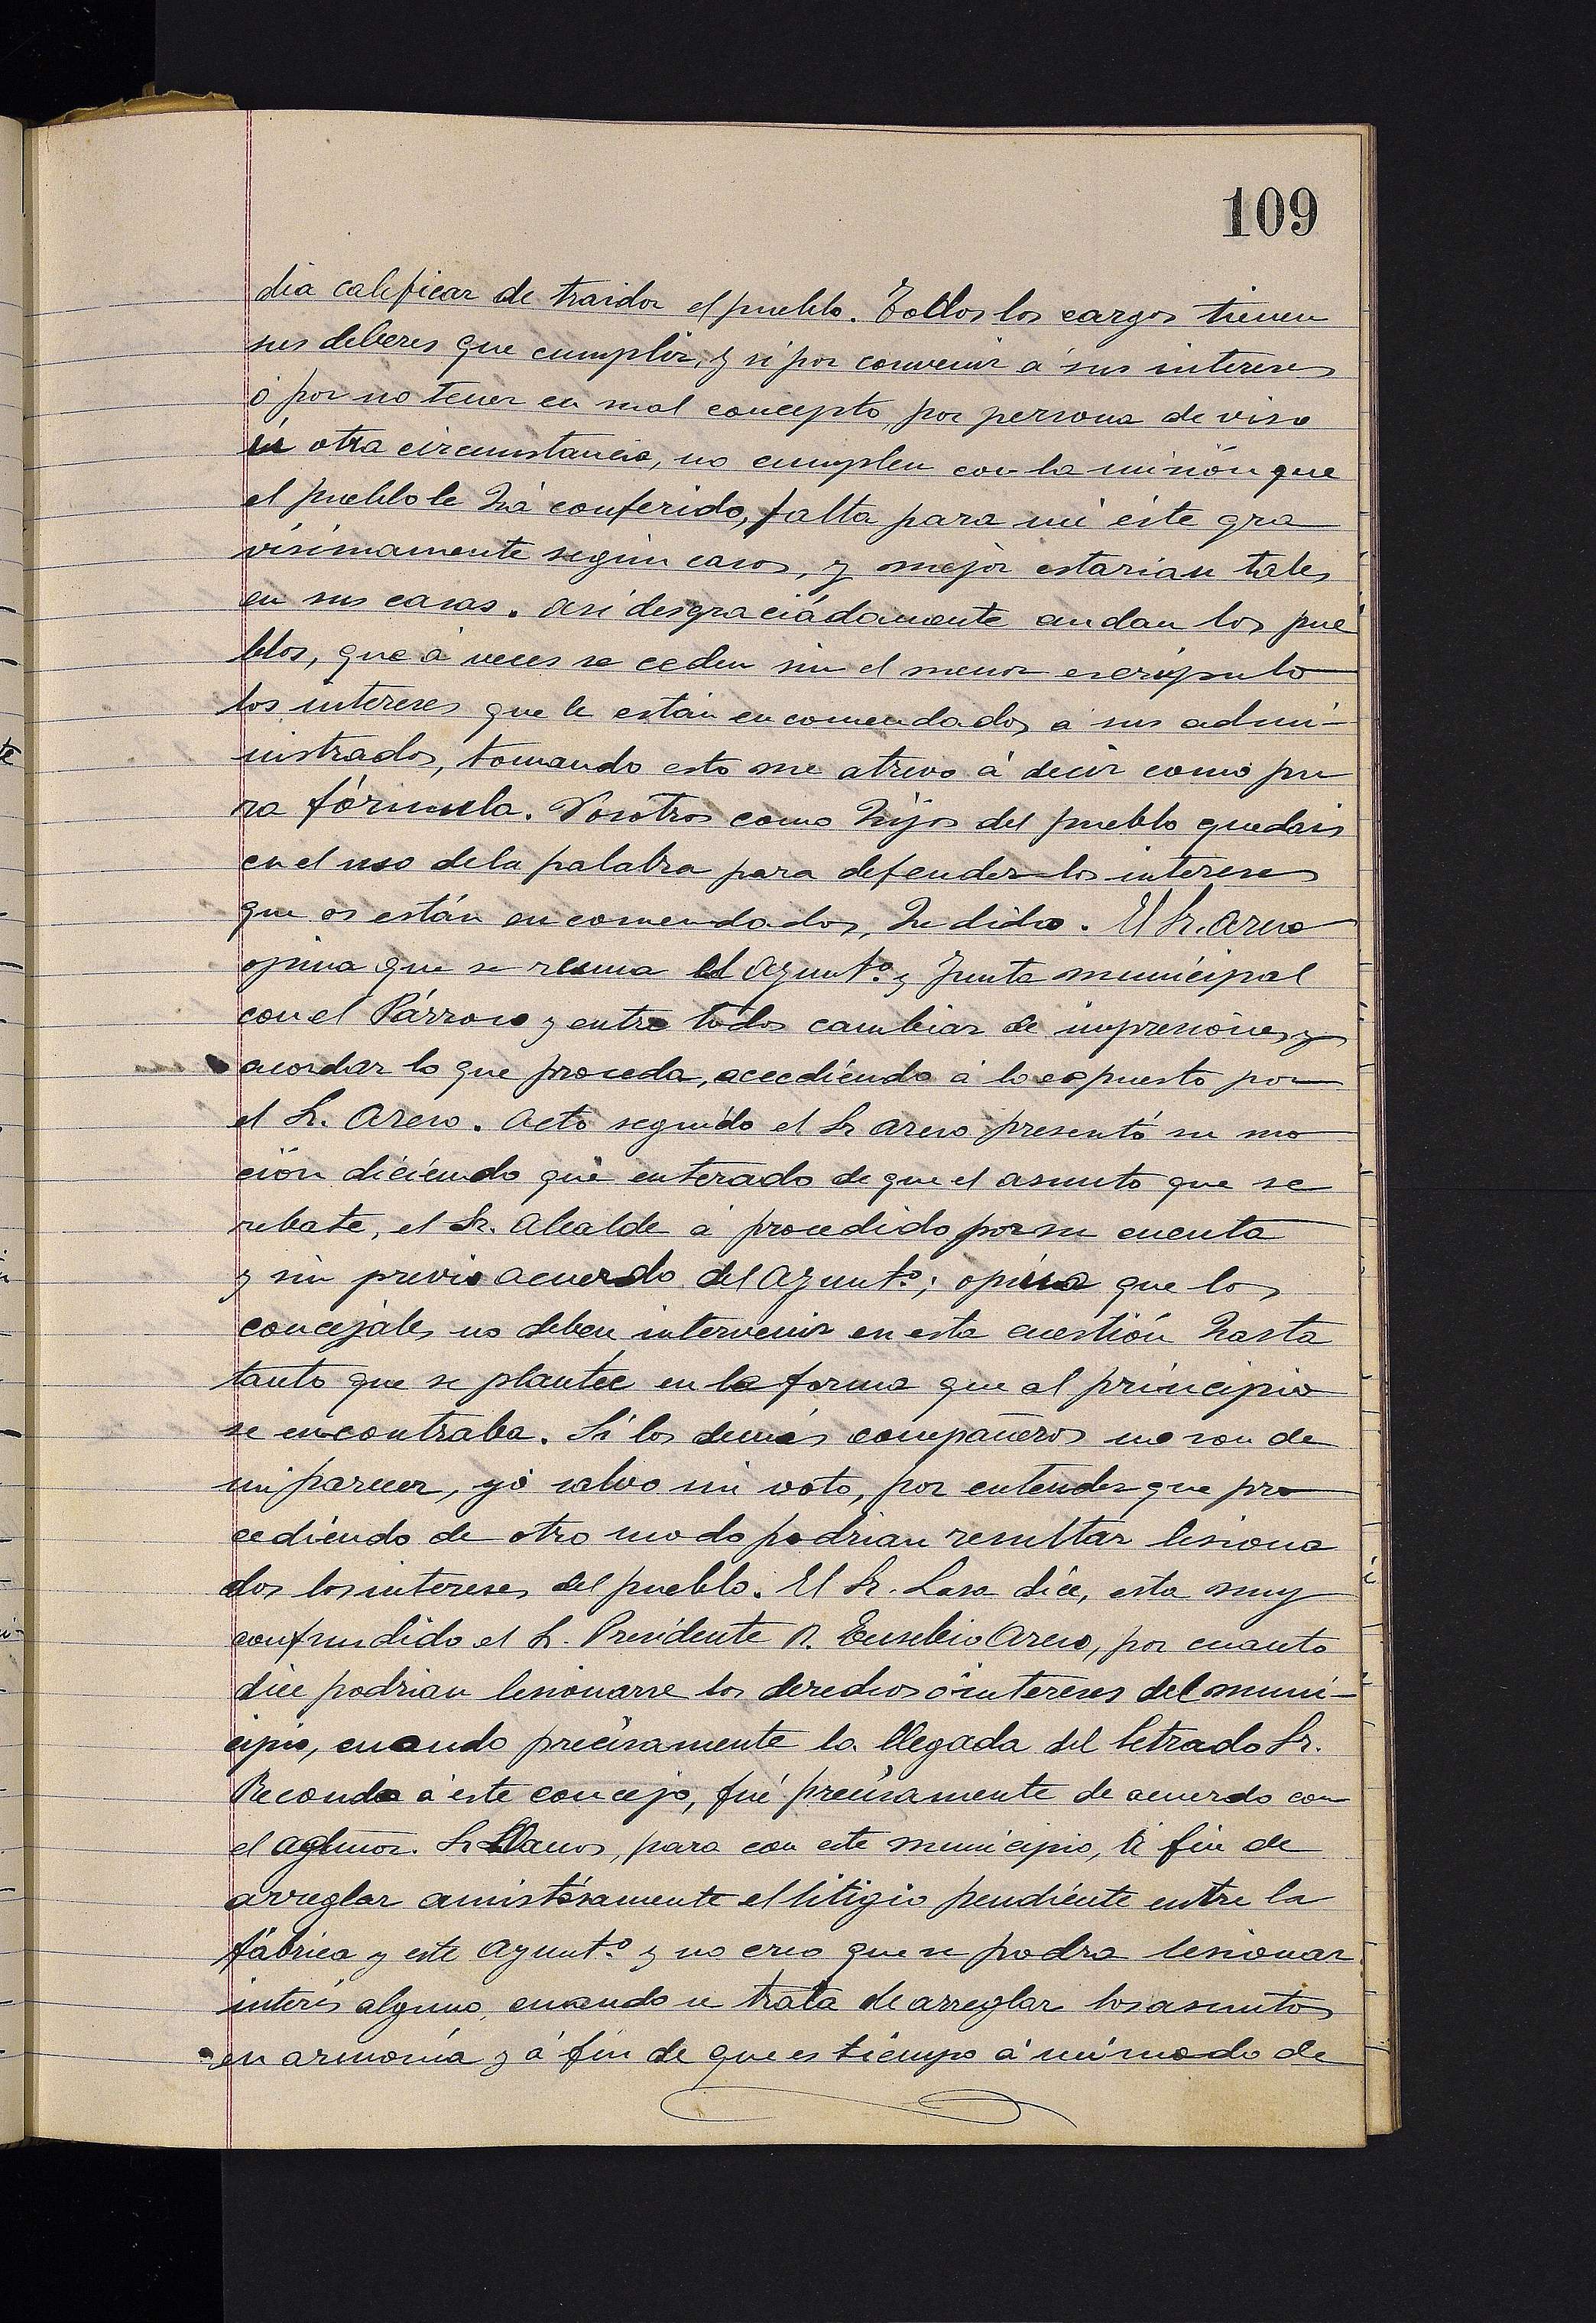 109
dia calificar de traidor el pueblo. Todos los cargos tienen
sus deberes que cumplir, y si por convenir á sus intereses
ó por no tener en mal concepto, por persona de viso
ú otra circunstancia, no cumplen con la misión que
el pueblo le há conferido, falta para mi éste gra
visimamente según casos, y mejor estarian tales
en sus casas. Asi desgraciádamente andan los pue
blos, que á veces se ceden sin el menor escrúpulo
los intereses que le están encomendados á sus admi-
nistrados, tomando esto me atrevo á decir como pu
ra fórmula. Vosotros como hijos del pueblo quedais
en el uso de la palabra para defender los intereses
que os están encomendados, he dicho. El Sr. Areso
opina que se reuna el Ayuntº. y Junta municipal
con el Párroco y entre todos cambiar de impresiones y
acordar lo que proceda, accediéndo á lo expuesto por
el Sr. Areso. Acto seguido el Sr Areso presentó su mo
ción diciéndo que enterado de que el asunto que se
rebate, el Sr. Alcalde á procedido por su cuenta
y sin previo acuerdo del Ayuntº.; opina que los
concejales no deben intervenir en esta cuestión hasta
tanto que se plantée en la forma que al principio
se encontraba. Si los demás compañeros no son de
mi parecer, yó salvo mi voto, por entender que pro
cediéndo de otro modo podrian resultar lesiona
dos los intereses del pueblo. El Sr. Lasa dice, esta muy
confundido el Sr. Presidente D. Eusebio Areso, por cuanto
dice podrian lesionarse los derechos ó intereses del muni-
cipio, cuando precisamente la llegada del letrado Sr.
Recondo á éste concejo, fué precisamente de acuerdo con
el Sr Llanos, para con este municipio, á fin de
arreglar amistósamente el litigio pendiénte entre la
fábrica y este Ayuntº. y no creo que se podra lesionar
interés alguno, cuando se trata de arreglar los asuntos
en armonía y á fin de que es tiémpo á mi modo de